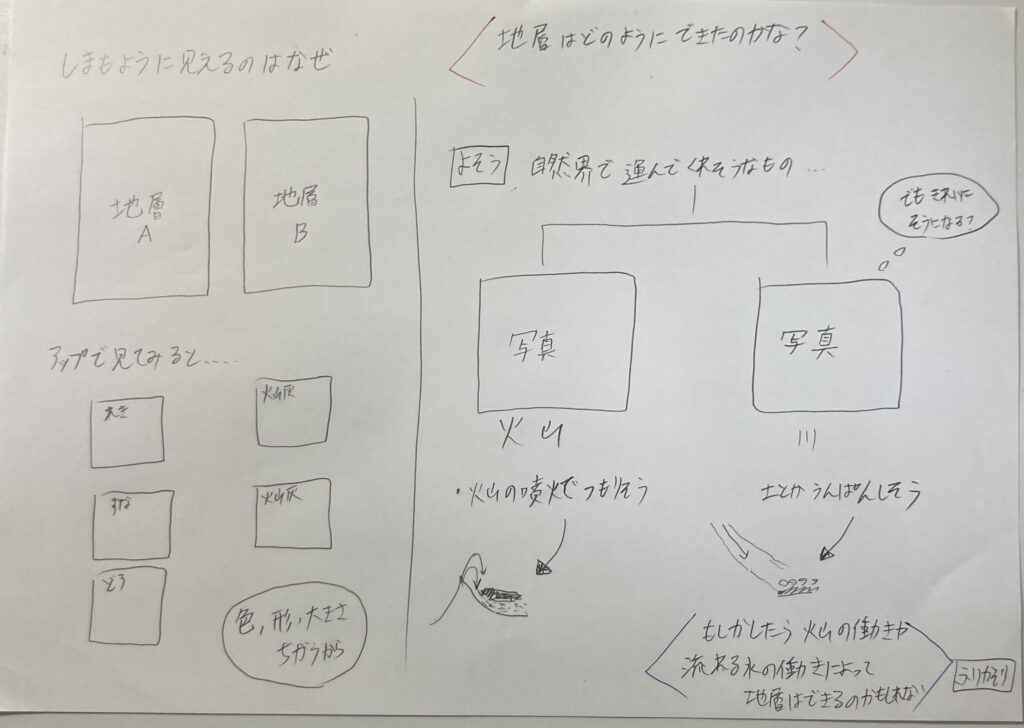 しまもように見えるのはなぜ
地層
A
地層
B
アップで見てみると.....
れき
火山灰
すな
火山灰
どろ
色,形,大きさ
ちがうから
地層はどのようにできたのかな?
よそう
自然界で運んでくれそうなもの...
でもきれいに
そうになる?
写真
写真
火山
川
・火山の噴火でつもりそう
土とかうんぱんしそう
もしかしたら火山の働きや
流れる水の働きによって
地層はできるのかもしれない
ふりかえり